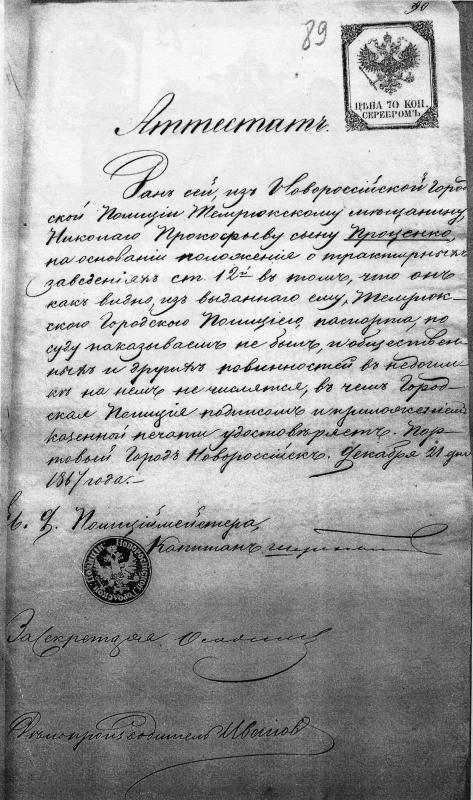 90
89
ЦѢНА 70 КОП.
СЕРЕБРОМЪ.
Аттестатъ.
Данъ сей, изъ Новороссійской Город-
ской Полиціи Темрюкскому мѣщанину,
Николаю Прокофьеву сыну Проценко,
на основаніи положенія о трактирныхъ
заведеніяхъ ст. 12й въ томъ, что онъ
какъ видно, изъ выданнаго ему, Темрюк-
скою Городскою Полиціею, паспорта, по
суду наказываемъ не былъ, и обществен-
ныхъ и другихъ повинностей въ недоим-
кѣ на немъ не числятся, въ чемъ Город-
ская Полиція подписомъ и приложеніемъ
казенной печати удостовѣряетъ. Пор-
товый Городъ Новороссійскъ. Декабря 21 дня
1867 года.
И. Д. Полиціймейстера,
Капитанъ
За Секретаря
Дѣлопроизводитель Ивановъ